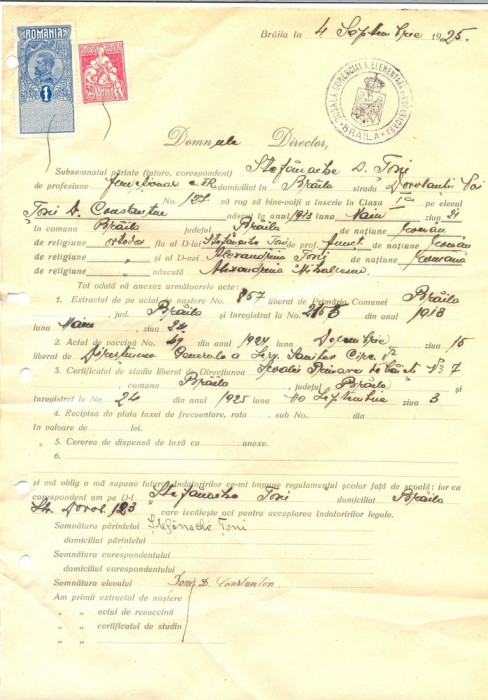 ROMANIA
1
Brăila în 4 Septembrie 1925.
ȘCOALA COMERCIALĂ ELEMENTARĂ
BRĂILA
Domnule Director,
Subsemnatul părinte (tutore, corespondent) Ștefănache D. Toni
de profesiune funcționar c.F.R. domiciliat în Brăila strada Dorobanți
No. 127 vă rog să bine-voiți a înscrie în Clasa I-a pe elevul
Toni D. Constantin născut în anul 1913 Maiu ziua 21
în comuna Brăila județul Brăila de națiune Român
de religiune ortodox fiu al D-lui Ștefănache Toni de prof. funct. de națiune Român
de religiune „ și al D-nei Alexandrina Toni de națiune Română
de religiune „ născută Alexandrina
Tot odată vă anexez următoarele acte:
1. Extractul de pe actul de naștere No. 857 liberat de Primăria Comunei Brăila
, jud. Brăila și înregistrat la No. din anul 1913
luna Maiu ziua 24.
2. Actul de vaccină No. 49 din anul 1924 luna Decembrie ziua 15
liberat de Direcțiunea Generală a Serv. Sanitar Circ.
3. Certificatul de studii liberat de Direcțiunea Școalei Primare de băieți No 7
, comuna Brăila județul Brăila și
înregistrat la No. 24 din anul 1925 luna Septembrie ziua 3
4. Recipisa de plata taxei de frecuentare, rata , sub No. din
în valoare de lei.
5. Cererea de dispensă de taxă cu anexe.
6.
și mă oblig a mă supune tuturor îndatoririlor ce-mi impune regulamentul școlar față de școală: iar ca
corespondent am pe D-l Ștefănache Toni domiciliat Brăila
Str. Dorob. 123 „ care iscălește aci pentru acceptarea îndatoririlor legale.
Semnătura părintelui Ștefănache Toni
domiciliul părintelui
Semnătura corespondentului
domiciliul corespondentului
Semnătura elevului Toni D. Constantin
Am primit extractul de naștere
„ „ actul de revaccină
„ „ certificatul de studii
„ „